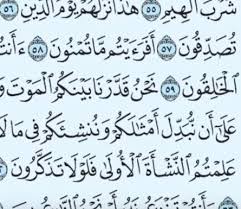 شُرْبَ ٱلْهِيمِ ۝٥٥ هَٰذَا نُزُلُهُمْ يَوْمَ ٱلدِّينِ ۝٥٦
تُصَدِّقُونَ ۝٥٧ أَفَرَءَيْتُم مَّا تُمْنُونَ ۝٥٨ ءَأَنتُ
ٱلْخَٰلِقُونَ ۝٥٩ نَحْنُ قَدَّرْنَا بَيْنَكُمُ ٱلْمَوْتَ وَ
عَلَىٰٓ أَن نُّبَدِّلَ أَمْثَٰلَكُمْ وَنُنشِئَكُمْ فِى مَا لَا
عَلِمْتُمُ ٱلنَّشْأَةَ ٱلْأُولَىٰ فَلَوْلَا تَذَكَّرُونَ